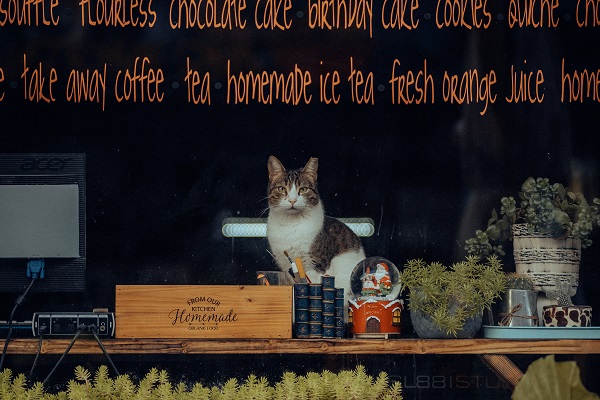 souffle flourless chocolate cake birthday cake cookies Quiche
take away coffee tea homemade ice tea fresh orange juice
acer
FROM OUR
KITCHEN
Homemade
ORGANIC FOOD